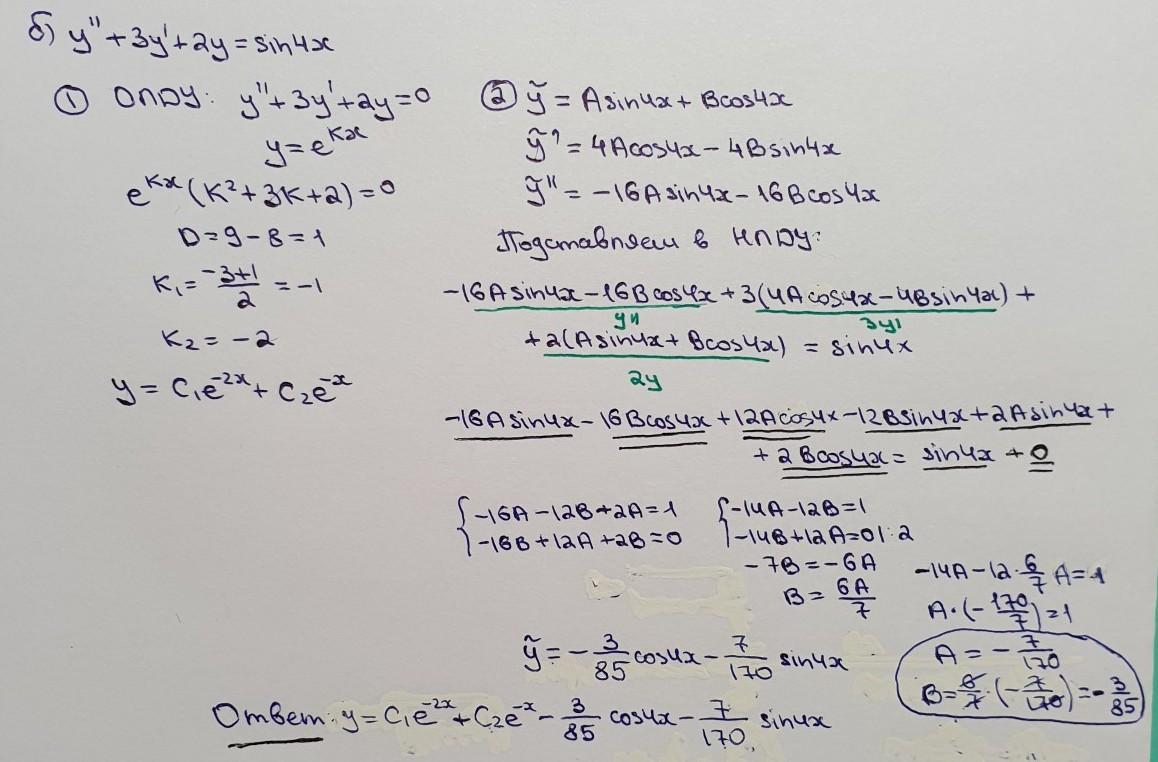 б) y'' + 3y' + 2y = sin4x
① ОЛДУ: y'' + 3y' + 2y = 0
y = e^{kx}
e^{kx}(k² + 3k + 2) = 0
D = 9 - 8 = 1
k₁ = \frac{-3+1}{2} = -1
k₂ = -2
y = C₁e^{-2x} + C₂e^{-x}
② ỹ = Asin4x + Bcos4x
ỹ' = 4Acos4x - 4Bsin4x
ỹ'' = -16Asin4x - 16Bcos4x
Подставляем в НЛДУ:
-16Asin4x - 16Bcos4x + 3(4Acos4x - 4Bsin4x) +
y'' 3y'
+ 2(Asin4x + Bcos4x) = sin4x
2y
-16Asin4x - 16Bcos4x + 12Acos4x - 12Bsin4x + 2Asin4x +
+ 2Bcos4x = sin4x + 0
{-16A - 12B + 2A = 1
-16B + 12A + 2B = 0
{-14A - 12B = 1
-14B + 12A = 0 | : 2
-7B = -6A
B = \frac{6A}{7}
-14A - 12 · \frac{6}{7} A = 1
A · (-\frac{170}{7}) = 1
A = -\frac{7}{170}
B = \frac{6}{7} · (-\frac{7}{170}) = -\frac{3}{85}
ỹ = -\frac{3}{85} cos4x - \frac{7}{170} sin4x
Ответ: y = C₁e^{-2x} + C₂e^{-x} - \frac{3}{85} cos4x - \frac{7}{170} sin4x